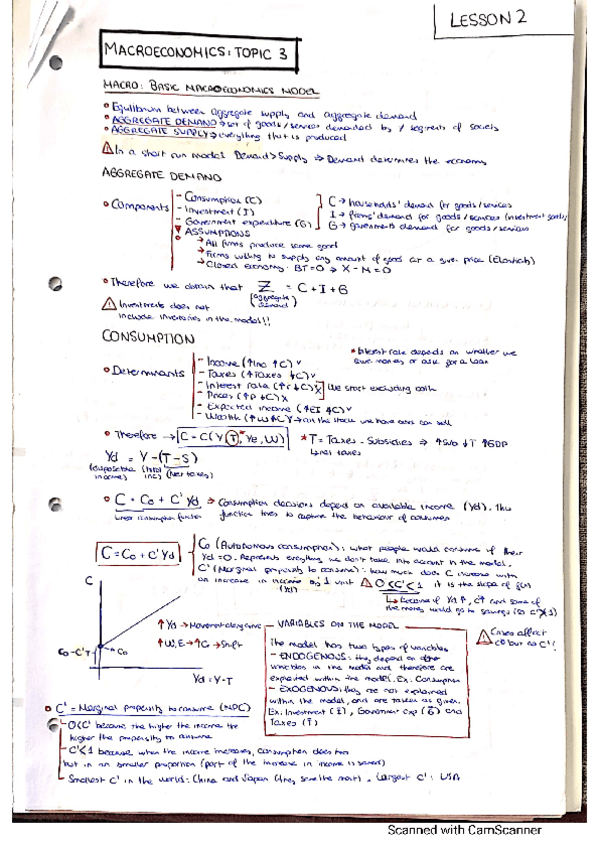 LESSON 2
MACROECONOMICS: TOPIC 3
MACRO: BASIC MACROECONOMICS MODEL
• Equilibrium between aggregate supply and aggregate demand
• AGGREGATE DEMAND → set of goods/services demanded by / segments of society
• AGGREGATE SUPPLY → everything that is produced
⚠ In a short run model Demand > Supply → Demand determines the economy
AGGREGATE DEMAND
• Components
- Consumption (C)
- Investment (I)
- Government expenditure (G)
C → households' demand for goods/services
I → firms' demand for goods/services (investment goods)
G → governments demand for goods/services
ASSUMPTIONS
→ All firms produce same good
→ Firms willing to supply any amount of good at a given price
→ Closed economy. BT=0 → X-M=0
• Therefore we obtain that Z = C+I+G
(aggregate demand)
⚠ Investments does not
include inventories in the model!!
CONSUMPTION
• Determinants
- Income (↑Inc ↑C) ✓
- Taxes (↑Taxes ↓C) ✓
- Interest rate (↑r ↓C) X
- Prices (↑P ↓C) X
We start excluding both
- Expected income
- Wealth
* Interest rate depends on whether we
save money or ask for a loan
• Therefore → C = C(Y, T, Ye, W)
* T = Taxes - Subsidies ⇒ ↑Sub ↓T ↑GDP
↳ net taxes
Yd = Y - (T-S)
(disposable income) (total inc) (Net taxes)
• C = C0 + C' Yd → Consumption decisions depend on available income (Yd). This
function tries to capture the behaviour of consumers
linear consumption function
C = C0 + C' Yd
C0 (Autonomous consumption): what people would consume if their
Yd=0. Represents everything we don't take into account in the model.
C' (Marginal propensity to consume): how much does C increase with
an increase in income by 1 unit ⚠ 0<C'<1 it is the slope of f(x)
(Yd)
↳ Because if Yd ↑, C↑ and some of
the money would go to savings
C
C0-C'T
C0
Yd = Y-T
↑Yd → Movement along curve
↑W, E → ↑C → Shift
VARIABLES ON THE MODEL
The model has two types of variables
- ENDOGENOUS: they depend on other
variables in the model and therefore are
explained within the model. Ex. Consumption
- EXOGENOUS: they are not explained
within the model, and are taken as given.
Ex: Investment (I), Government exp (G) and
Taxes (T)
• C' = Marginal propensity to consume (MPC)
- 0<C' because the higher the income the
higher the propensity to consume
- C'<1 because when the income increases, consumption does too
but in an smaller proportion (part of the increase in income is saved)
- Smallest C' in the world: China and Japan (they save the most). Largest C': USA
Scanned with CamScanner